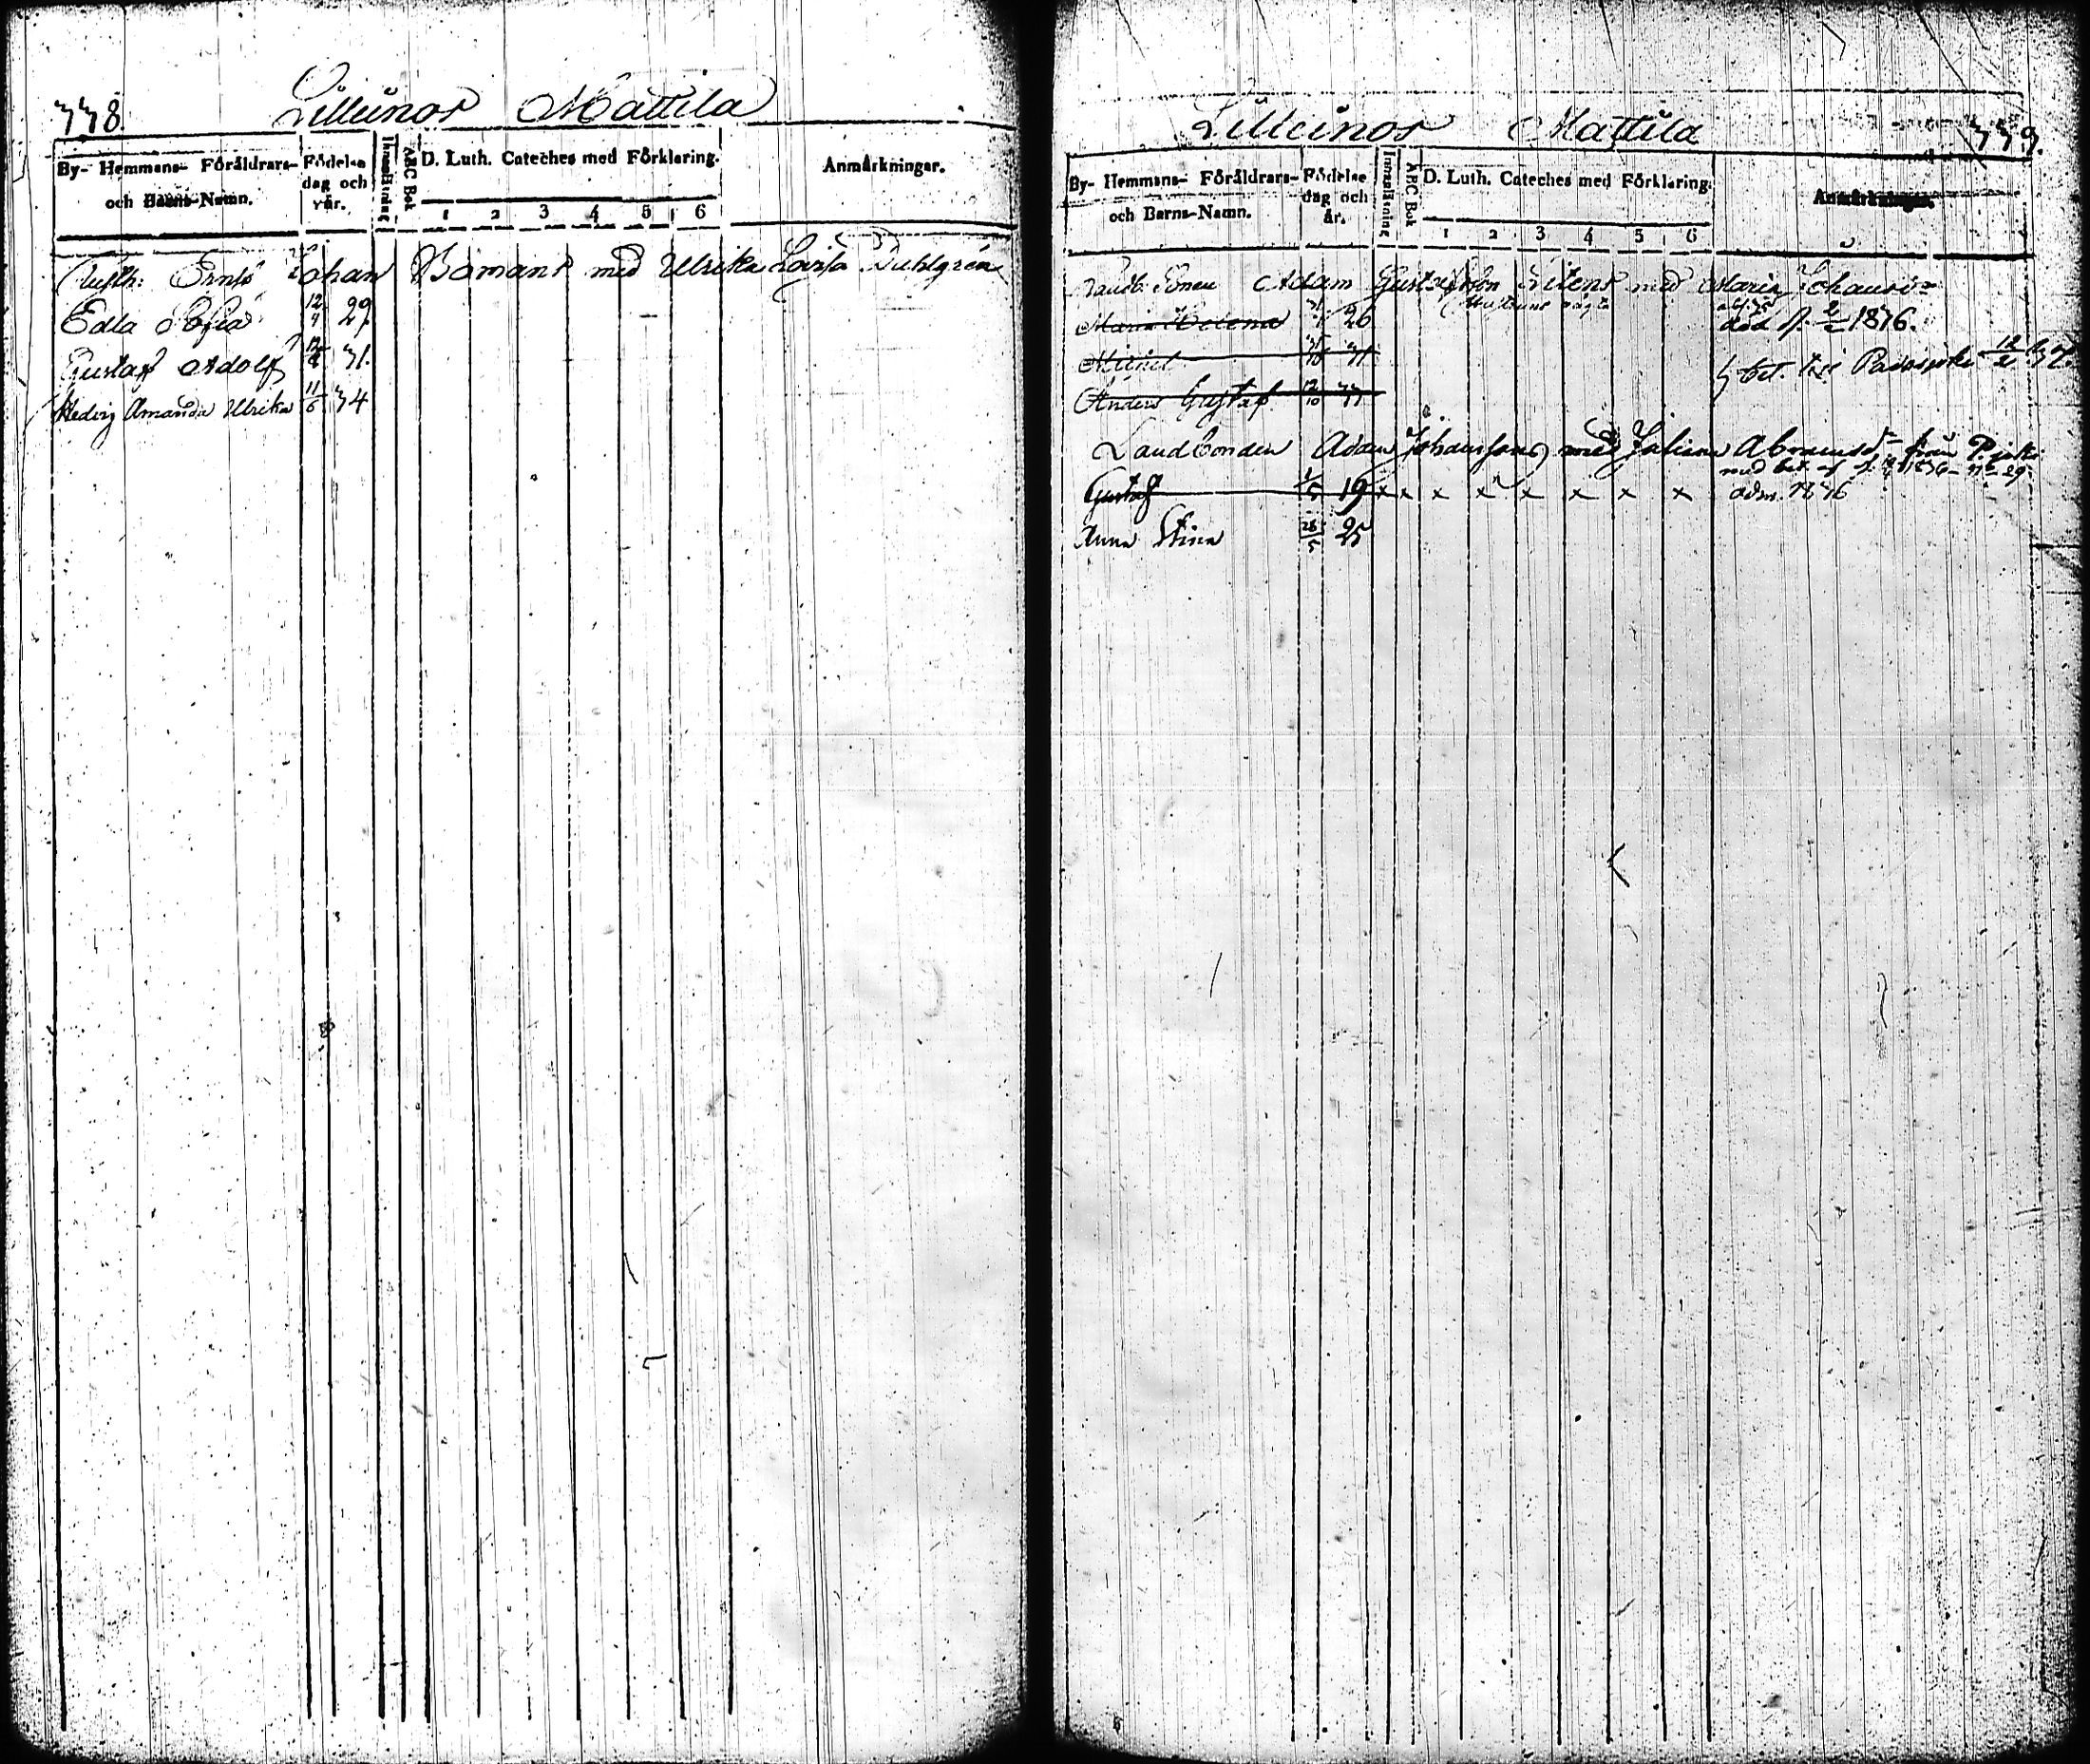 338.
Lilleinos Mattila
By- Hemmans- Föräldrars- och Barns-Namn.
Födelse dag och år.
Innanläsning
ABC Bok
D. Luth. Cateches med Förklaring.
1 2 3 4 5 6
Anmärkningar.
Rusth: Ernst Johan Bomans med Ulrika Lovisa Duhlgrén
Edla Sofia 12/7 29.
Gustaf Adolf 12/8 31.
Hedvig Amanda Ulrika 11/6 34
Lilleinos Mattila
339.
By- Hemmans- Föräldrars- och Barns-Namn.
Födelse dag och år.
Innanläsning
ABC Bok
D. Luth. Cateches med Förklaring.
1 2 3 4 5 6
Anmärkningar.
Adam Gustafsson Litens med Maria Johansd=
Maria Helena 26 död 1836.
Michel 31 bet. till
Anders Gustaf 12/10 33
Landbonden Adam Johanssons med Juliana Abramsd= från P.
med bet. af 1836 N= 29
Gustaf 1/5 19 x x x x x x x x adm. 1836
Anna Stina 26/5 25